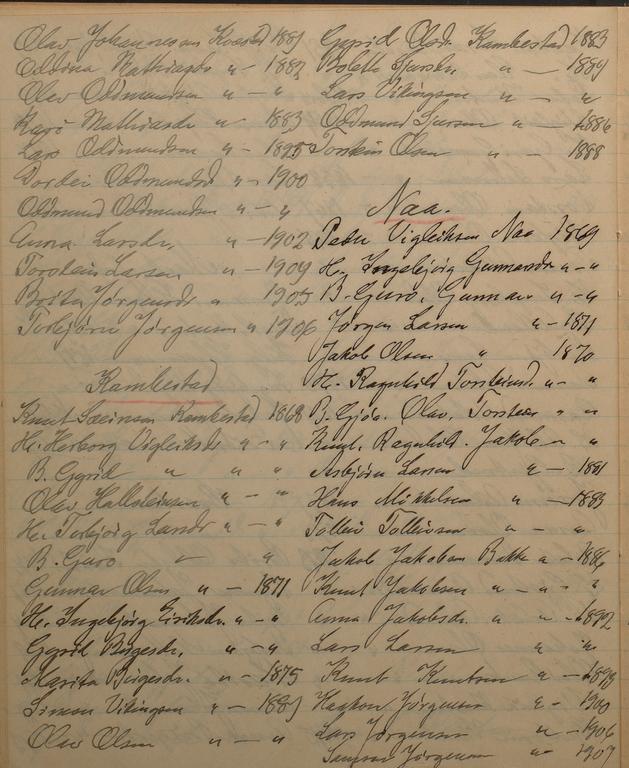 Olav Johannessen Kvestad 1881
Oddina Mathiasdr " - 1882
Olav Oddmundsen " - "
Kari Mathiasdr " - 1883
Lars Oddmundsen " - 1898
Tordei Oddmundsd " - 1900
Oddmund Oddmundsen " - "
Anna Larsdr. " - 1902
Torstein Larsen " - 1904
Brita Jørgensdr " 1905
Torbjørn Jørgensen " 1906
Kambestad
Knut Sveinsen Kambestad 1868
H. Herborg Vigleiksdr " - "
B. Gyrid " " "
Olav Hallsteinsen " - "
H. Torbjørg Larsdr " - "
B. Guro " "
Gunnar Olsen " - 1871
H. Ingebjørg Eiriksdr. " - "
Gyrid Birgesdr. " - "
Marita Birgesdr. " - 1875
Simon Vikingsen " - 1881
Olav Olsen " - "
Gyrid Olsdr. Kambestad 1883
Bolette Sjursdr. " - 1884
Lars Vikingsen " - "
Oddmund Sjursen " - 1886
Torstein Olsen " - 1888
Naa.
Peder Vigleiksen Naa 1869
H. Ingebjørg Gunnarsdr " - "
B. Guro, Gunnar " - "
Jørgen Larsen " - 1871
Jakob Olsen " 1870
H. Ragnhild Torsteinsd. " - "
B. Gjøa. Olav, Torstein " "
Knut, Ragnhild. Jakob " "
Asbjørn Larsen " - 1881
Hans Mikkelsen " - 1883
Tolleiv Tolleivsen " - "
Jakob Jakobsen Bakke " - 1886
Knut Jakobsen " - "
Anna Jakobsdr. " - 1892
Lars Larsen " "
Knut Knutsen " - 1898
Haakon Jørgensen " - 1900
Lars Jørgensen " - 1906
Jørgensen " 1907